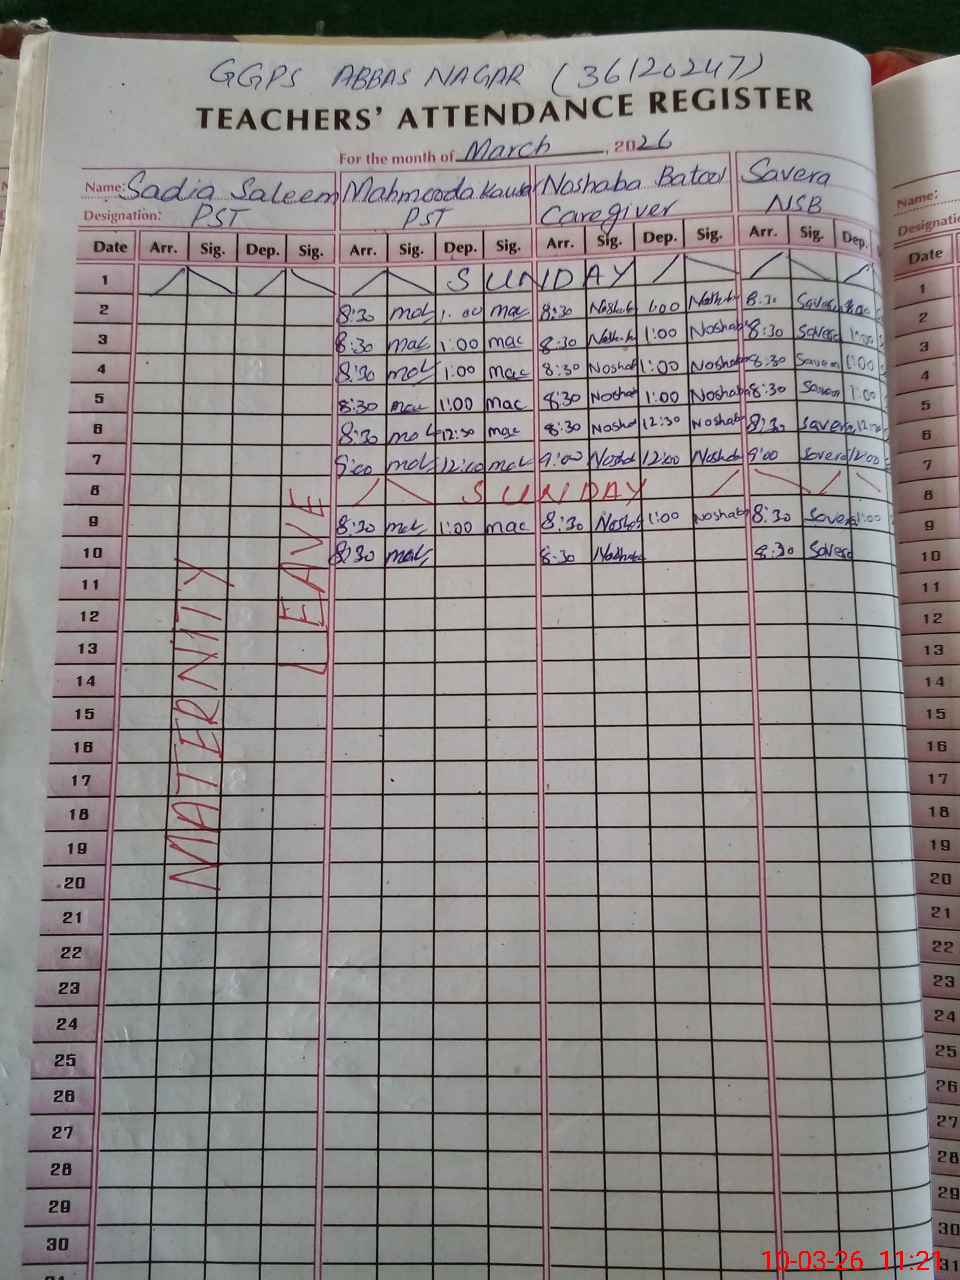 GGPS ABBAS NAGAR (36120247)
TEACHERS' ATTENDANCE REGISTER
For the month of March, 2026
Name: Sadia Saleem Mahmooda Kausar Noshaba Batool Savera
Designation: PST PST Caregiver NSB
Date Arr. Sig. Dep. Sig. Arr. Sig. Dep. Sig. Arr. Sig. Dep. Sig. Arr. Sig. Dep.
1 SUNDAY
2 8:30 1:00 mac 8:30 Noshab 1:00 Noshab 8:30 Savera
3 8:30 mac 1:00 mac 8:30 1:00 Noshab 8:30 Savera 1:00
4 8:30 1:00 mac 8:30 Noshab 1:00 Noshab 8:30 Savera 1:00
5 8:30 mac 1:00 mac 8:30 Noshab 1:00 Noshab 8:30 Savera 1:00
6 8:30 12:30 mac 8:30 Nosha 12:30 Noshab 8:30 Savera 12:30
7 9:00 12:00 9:00 Nosha 12:00 Noshab 9:00 Savera 12:00
8 SUNDAY
9 8:30 1:00 mac 8:30 Nosha 1:00 Noshab 8:30 Savera 1:00
10 8:30 8:30 Noshaba 8:30 Savera
MATERNITY
LEAVE
11
12
13
14
15
16
17
18
19
20
21
22
23
24
25
26
27
28
29
30
Name:
Designatio
Date
1
2
3
4
5
6
7
8
9
10
11
12
13
14
15
16
17
18
19
20
21
22
23
24
25
26
27
28
29
30
31
10-03-26 11:21